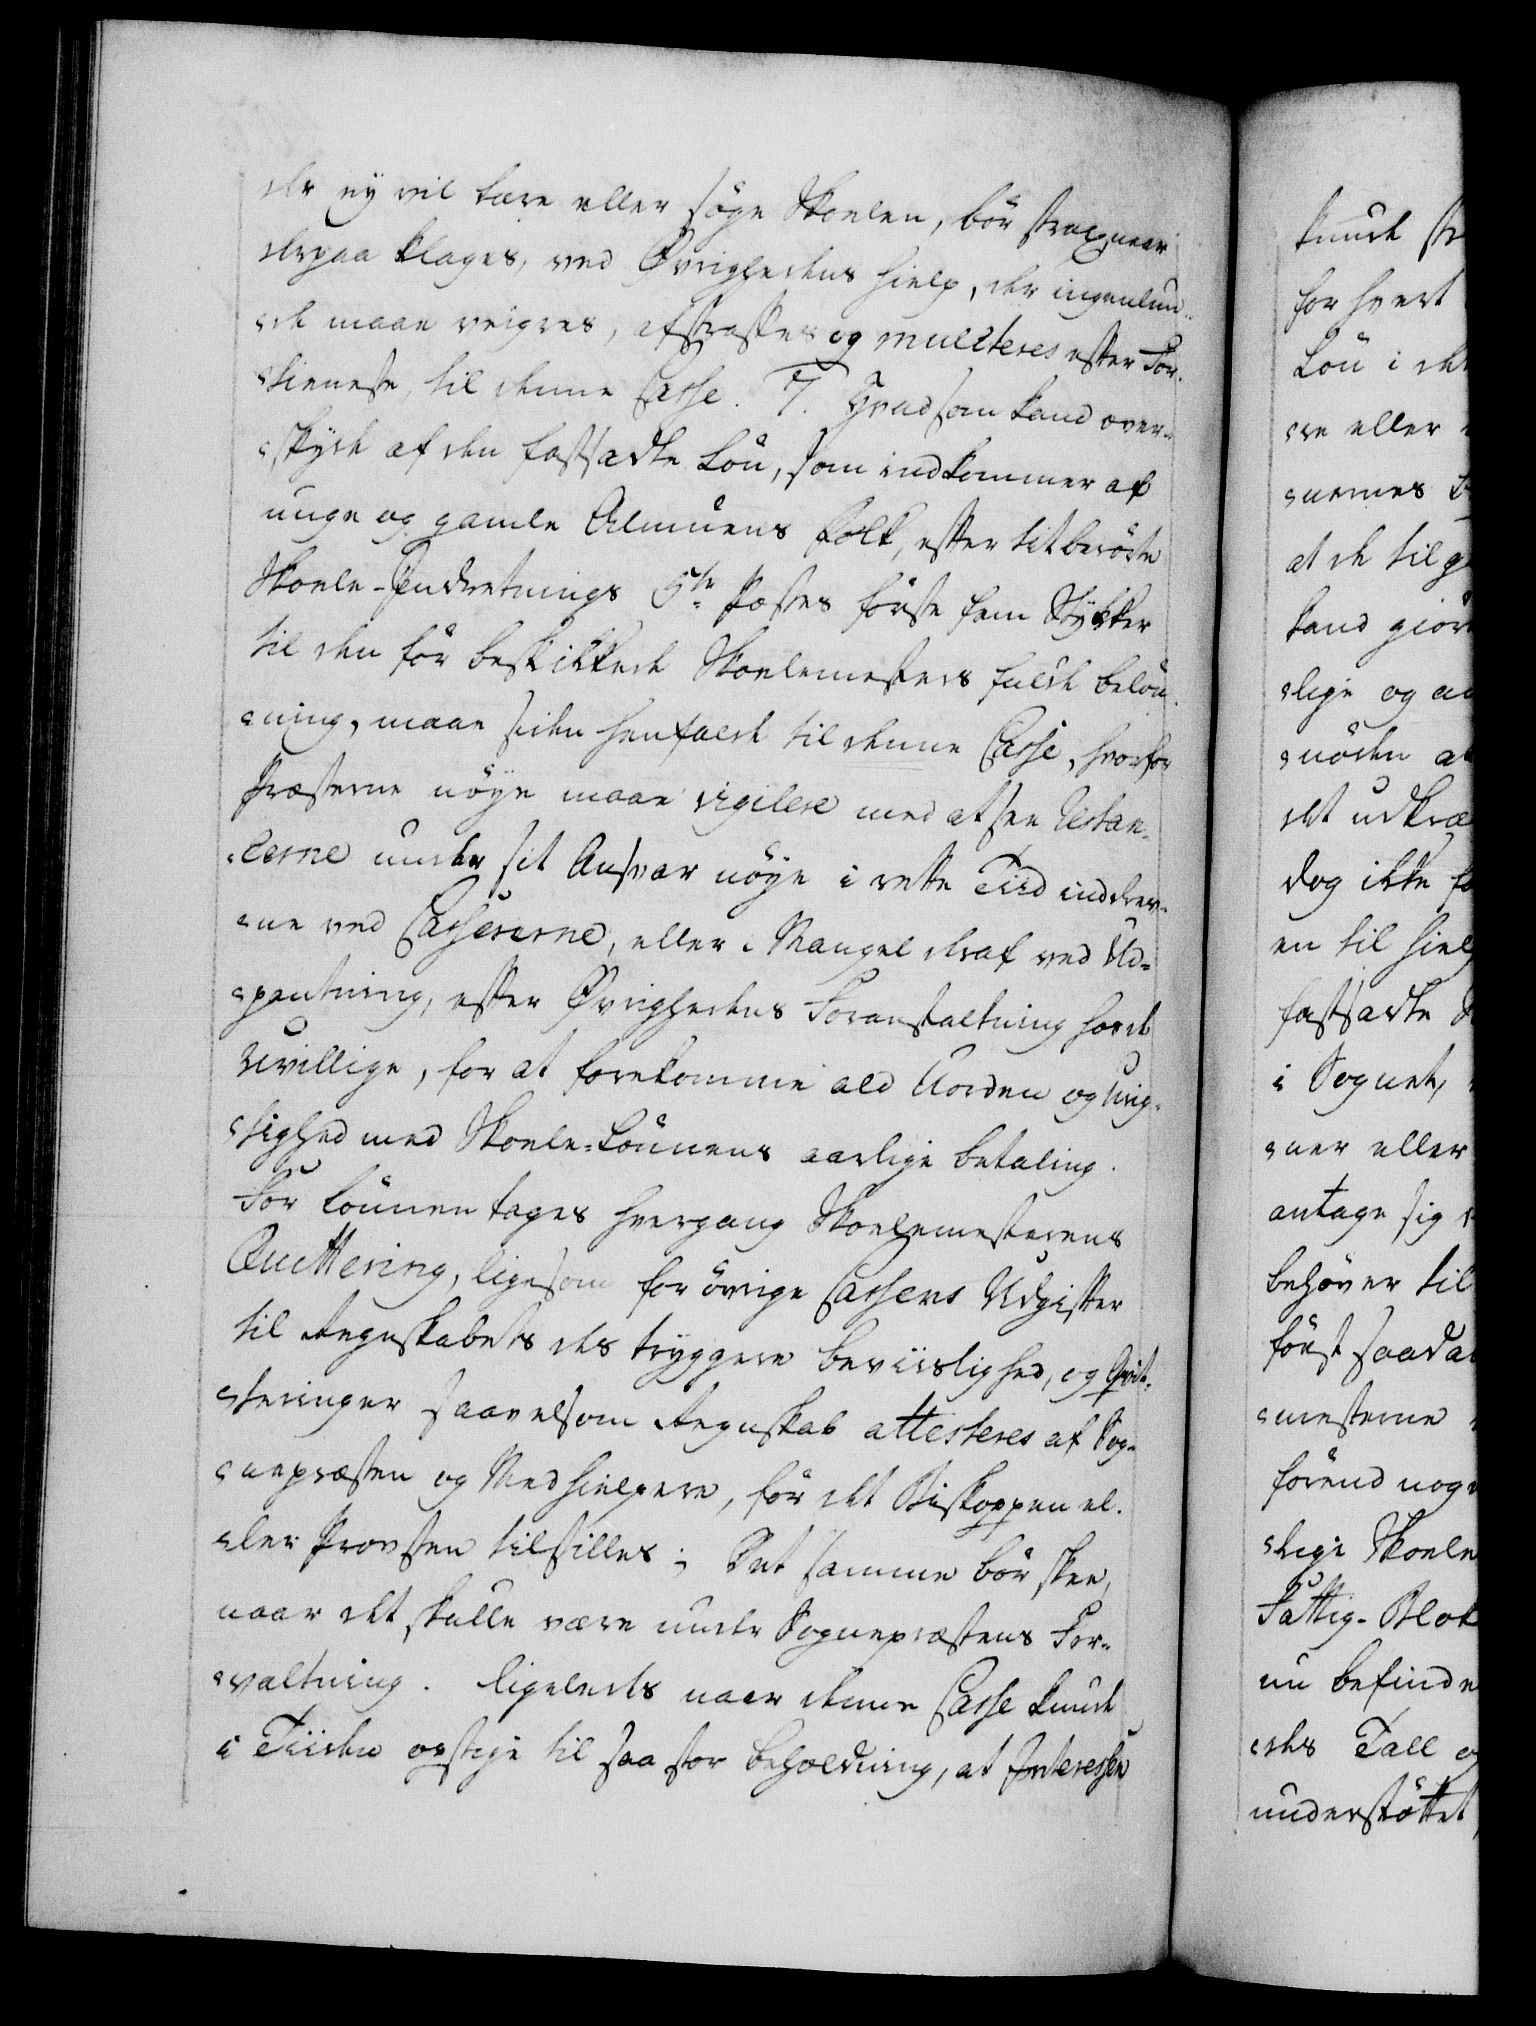 der ej vil lære eller søge Skoelen, bør strax naar
derpaa klages, ved Øvrighedens hielp, der ingenlun-
de maae veigres, afstraffes og mulcteres efter For-
tieneste, til denne Casse. 7. Hvad som kand over-
skyde af den fastsadte Løn, som indkommer af
unge og gamle Almuens folk, efter titberørte
Skoele-Indretnings 5te Postes første fem Stykker
til den før beskikkede Skoelemesters fulde beløn-
ning, maae siden henfalde til denne Casse, hvorfor
Præsterne nøye maae vigilere med at see Restan-
cerne under sit Ansvar nøye i rette Tiid inddrev-
ne ved Cassererne, eller i Mangel deraf ved Ud-
pantning, efter Øvrighedens Foranstaltning hos de
Uvillige, for at forekomme ald Uorden og Urig-
tighed med Skoele-Lønnens aarlige betaling.
For Lønnen tages hvergang Skoelemesterens
Quittering, ligesom for øvrige Cassens Udgifter
til Regnskabets des tryggere beviislighed, og Qvit-
teringer saavelsom Regnskab attesteres af Sog-
nepræsten og Medhielpere, før det Biskoppen el-
ler Provsten tilstilles; Det samme bør skee,
naar det skulle være under Sognepræstens For-
valtning. ligeledes naar denne Casse kunde
i Tiiden opstige til saa stor beholdning, at Interessen
kunde
for hvert
Løn i det
re eller
nernes
at de til
kand giør
lige og
nøden
det udkræ
dog ikke
en til hielp
fastsadte
i Sognet,
ner eller
antage sig
behøver til
først saada
mesterne
førend nog
lige Skoele
Fattig-Blok
nu befinde
des Tall
understøttet